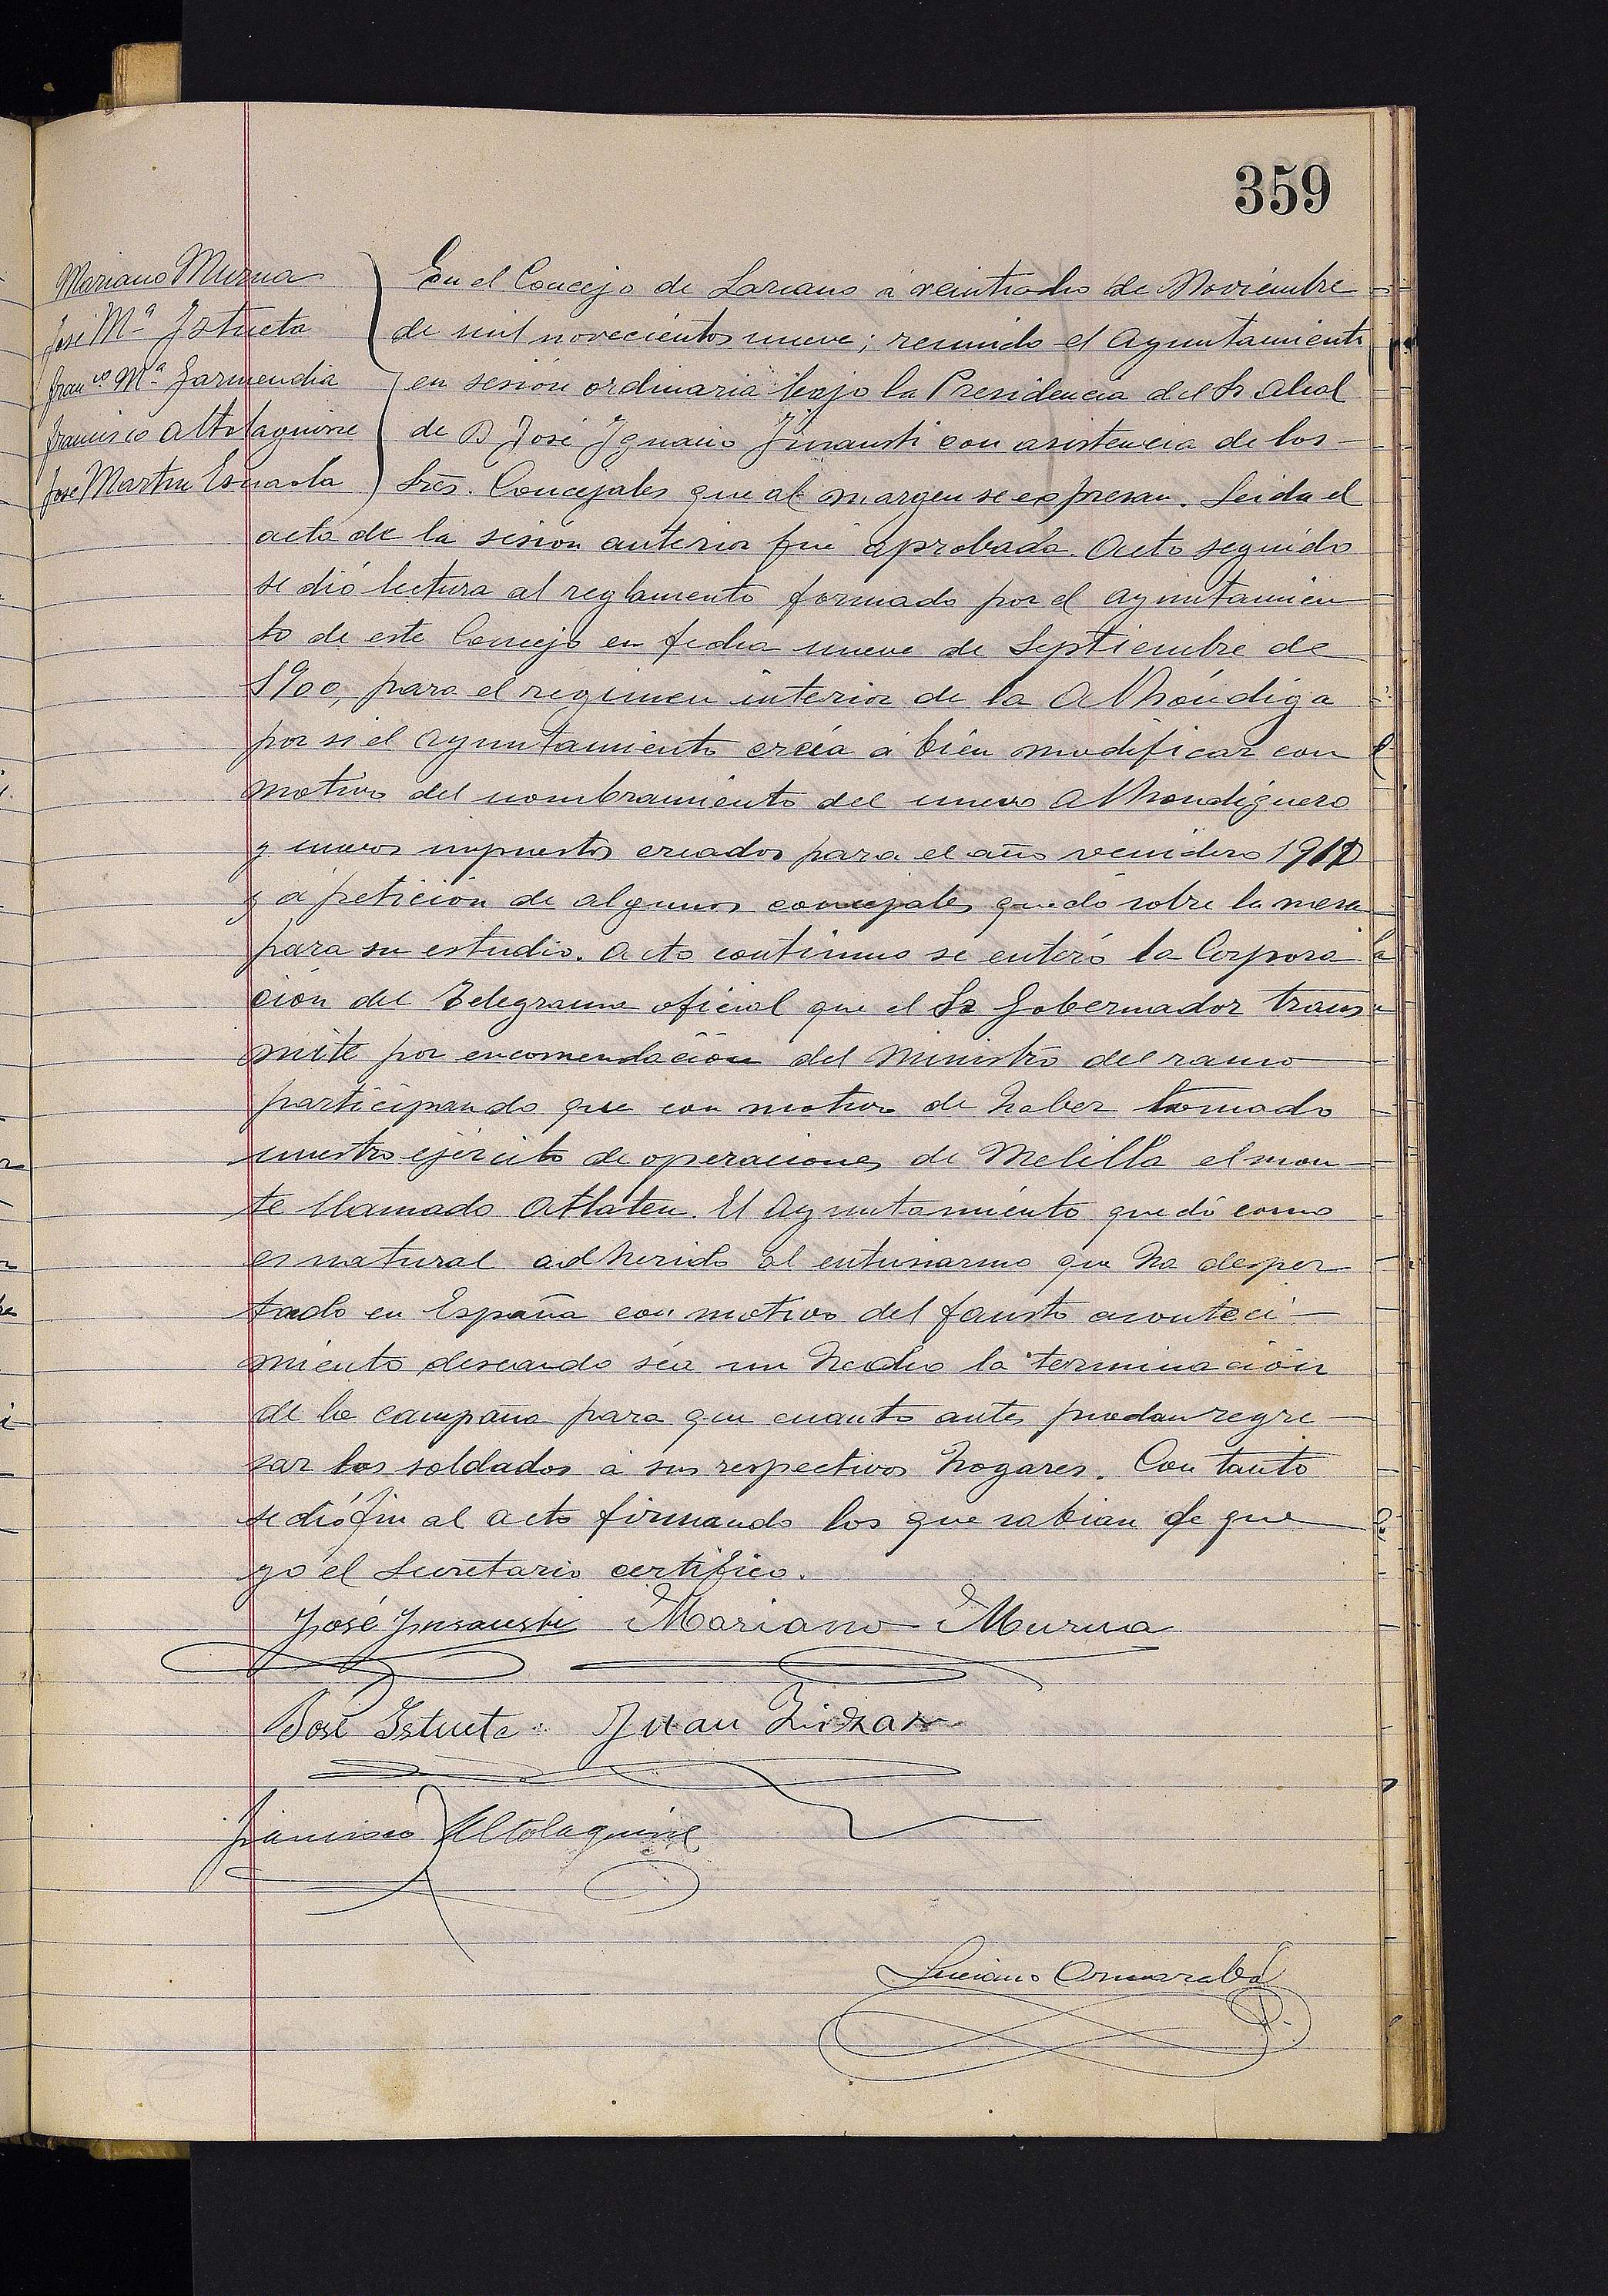 359
Mariano Murua
José Mª Istueta
Franco Mª Garmendia
Francisco Altolaguirre
José Martin Esnaola
En el Concejo de Lazcano á veintiocho de Noviembre
de mil novecientos nueve; reunido el Ayuntamiento
en sesión ordinaria bajo la Presidencia del Sr Alcal
de D José Ignacio Insausti con asistencia de los
Sres. Concejales que al margen se expresan. Leida el
acta de la sesión anterior fué aprobada. Acto seguido
se dió lectura al reglamento formado por el Ayuntamien
to de este Concejo en fecha nueve de Septiembre de
1900, para el regimen interior de la Alhóndiga
por si el Ayuntamiento creía á bien modificar con
motivo del nombramiento del nuevo Alhondiguero
y nuevos impuestos creados para el año venidero 1910
y á petición de algunos concejales quedó sobre la mesa
para su estudio. Acto continuo se enteró la Corpora
ción del Telegrama oficial que el Sr Gobernador trans
mite por encomendación del Ministro del ramo
participando que con motivo de haber tomado
nuestro ejército de operaciones de Melilla el mon
te llamado Atlaten. El Ayuntamiento quedó como
es natural adherido al entusiasmo que ha desper
tado en España con motivo del fausto aconteci-
miento deseando sea un hecho la terminación
de la campaña para que cuanto antes puedan regre
sar los soldados á sus respectivos hogares. Con tanto
se dió fin al acto firmando los que sabian de que
yo el Secretario certifico.
José Insausti Mariano Murua
José Istueta Juan
Francisco Altolaguirre
Luciano